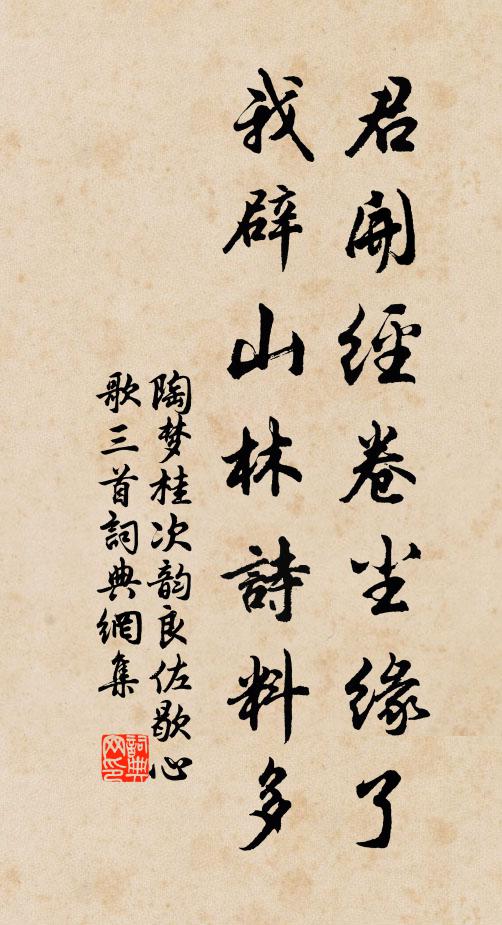 君開經卷尘緣了
我辟山林詩料多
陶梦桂次韵良佐歇心
歌三首詞典網集
詞典
网印